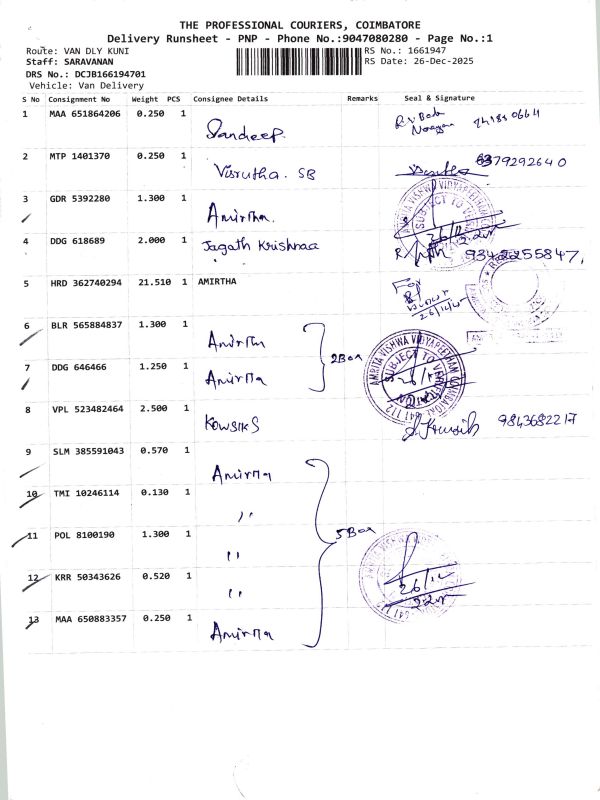 THE PROFESSIONAL COURIERS, COIMBATORE
Delivery Runsheet - PNP - Phone No.:9047080280 - Page No.:1
Route: VAN DLY KUNI
RS No.: 1661947
Staff: SARAVANAN
RS Date: 26-Dec-2025
DRS No.: DCJB166194701
Vehicle: Van Delivery
S No Consignment No Weight PCS Consignee Details Remarks Seal & Signature
1 MAA 651864206 0.250 1 Sandeep.
2 MTP 1401370 0.250 1 Visrutha. SB 6379292640
3 GDR 5392280 1.300 1 Amirtha.
AMRITA VISHWA VIDYAPEETHAM
SUBJECT TO
26/12
4 DDG 618689 2.000 1 Jagath Krishnaa 9342255847,
5 HRD 362740294 21.510 1 AMIRTHA For
26/12/25
6 BLR 565884837 1.300 1 Amirtha
2Box
7 DDG 646466 1.250 1 Amirtha
AMRITA VISHWA VIDYAPEETHAM COIMBATORE 641 112
SUBJECT TO VERIFICATION
26/12
8 VPL 523482464 2.500 1 Kowsik S 9843682217
9 SLM 385591043 0.570 1 Amirtha
10 TMI 10246114 0.130 1 ,,
11 POL 8100190 1.300 1 ,, 5Box
12 KRR 50343626 0.520 1 ,,
26/12
13 MAA 650883357 0.250 1 Amirtha
641 112